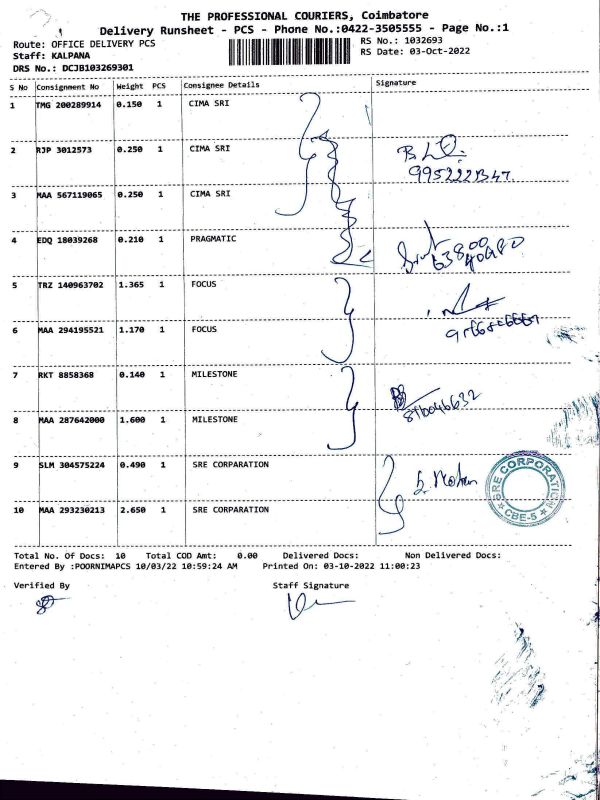 THE PROFESSIONAL COURIERS, Coimbatore
Delivery Runsheet - PCS - Phone No.:0422-3505555 - Page No.:1
Route: OFFICE DELIVERY PCS
RS No.: 1032693
Staff: KALPANA
RS Date: 03-Oct-2022
DRS No.: DCJB103269301
S No Consignment No Weight PCS Consignee Details Signature
1 TMG 200289914 0.150 1 CIMA SRI
2 RJP 3012573 0.250 1 CIMA SRI
3 MAA 567119065 0.250 1 CIMA SRI
4 EDQ 18039268 0.210 1 PRAGMATIC
5 TRZ 140963702 1.365 1 FOCUS
6 MAA 294195521 1.170 1 FOCUS
7 RKT 8858368 0.140 1 MILESTONE
8 MAA 287642000 1.600 1 MILESTONE
9 SLM 304575224 0.490 1 SRE CORPARATION
S. Mohan
SRE CORPORATION
CBE-5
10 MAA 293230213 2.650 1 SRE CORPARATION
Total No. Of Docs: 10 Total COD Amt: 0.00 Delivered Docs: Non Delivered Docs:
Entered By :POORNIMAPCS 10/03/22 10:59:24 AM Printed On: 03-10-2022 11:00:23
Verified By Staff Signature